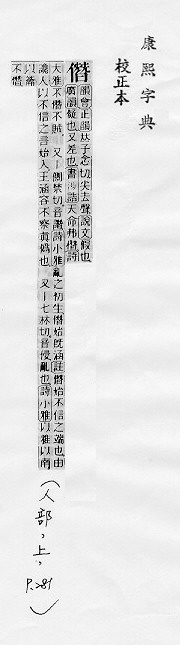 康熙字典
校正本
僭
韻會正韻𠀤子念切尖去聲說文假也
廣韻擬也又差也書湯誥天命弗僭詩
大雅不僭不賊 又側禁切音譖詩小雅亂之初生僭始旣涵註僭始不信之端也由
讒人以不信之言始入王涵容不察眞僞也 又七林切音侵亂也詩小雅以雅以南
以籥不僭
(人部，上，P.281)